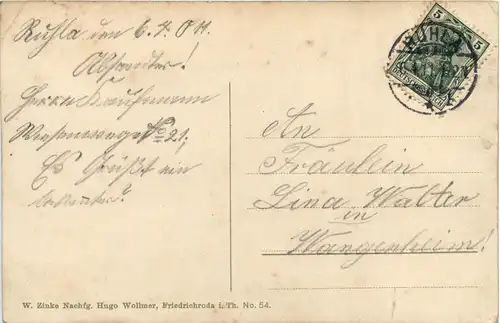 Ruhla den 6.4.
Absender!
Herrn Kaufmann
Wiesenwege No 21,
Es Grüßt ein
5 5
RUHLA
An
Fräulein
Lina Walter
in
Wangenheim!
W. Zinke Nachfg. Hugo Wollmer, Friedrichroda i. Th. No. 54.